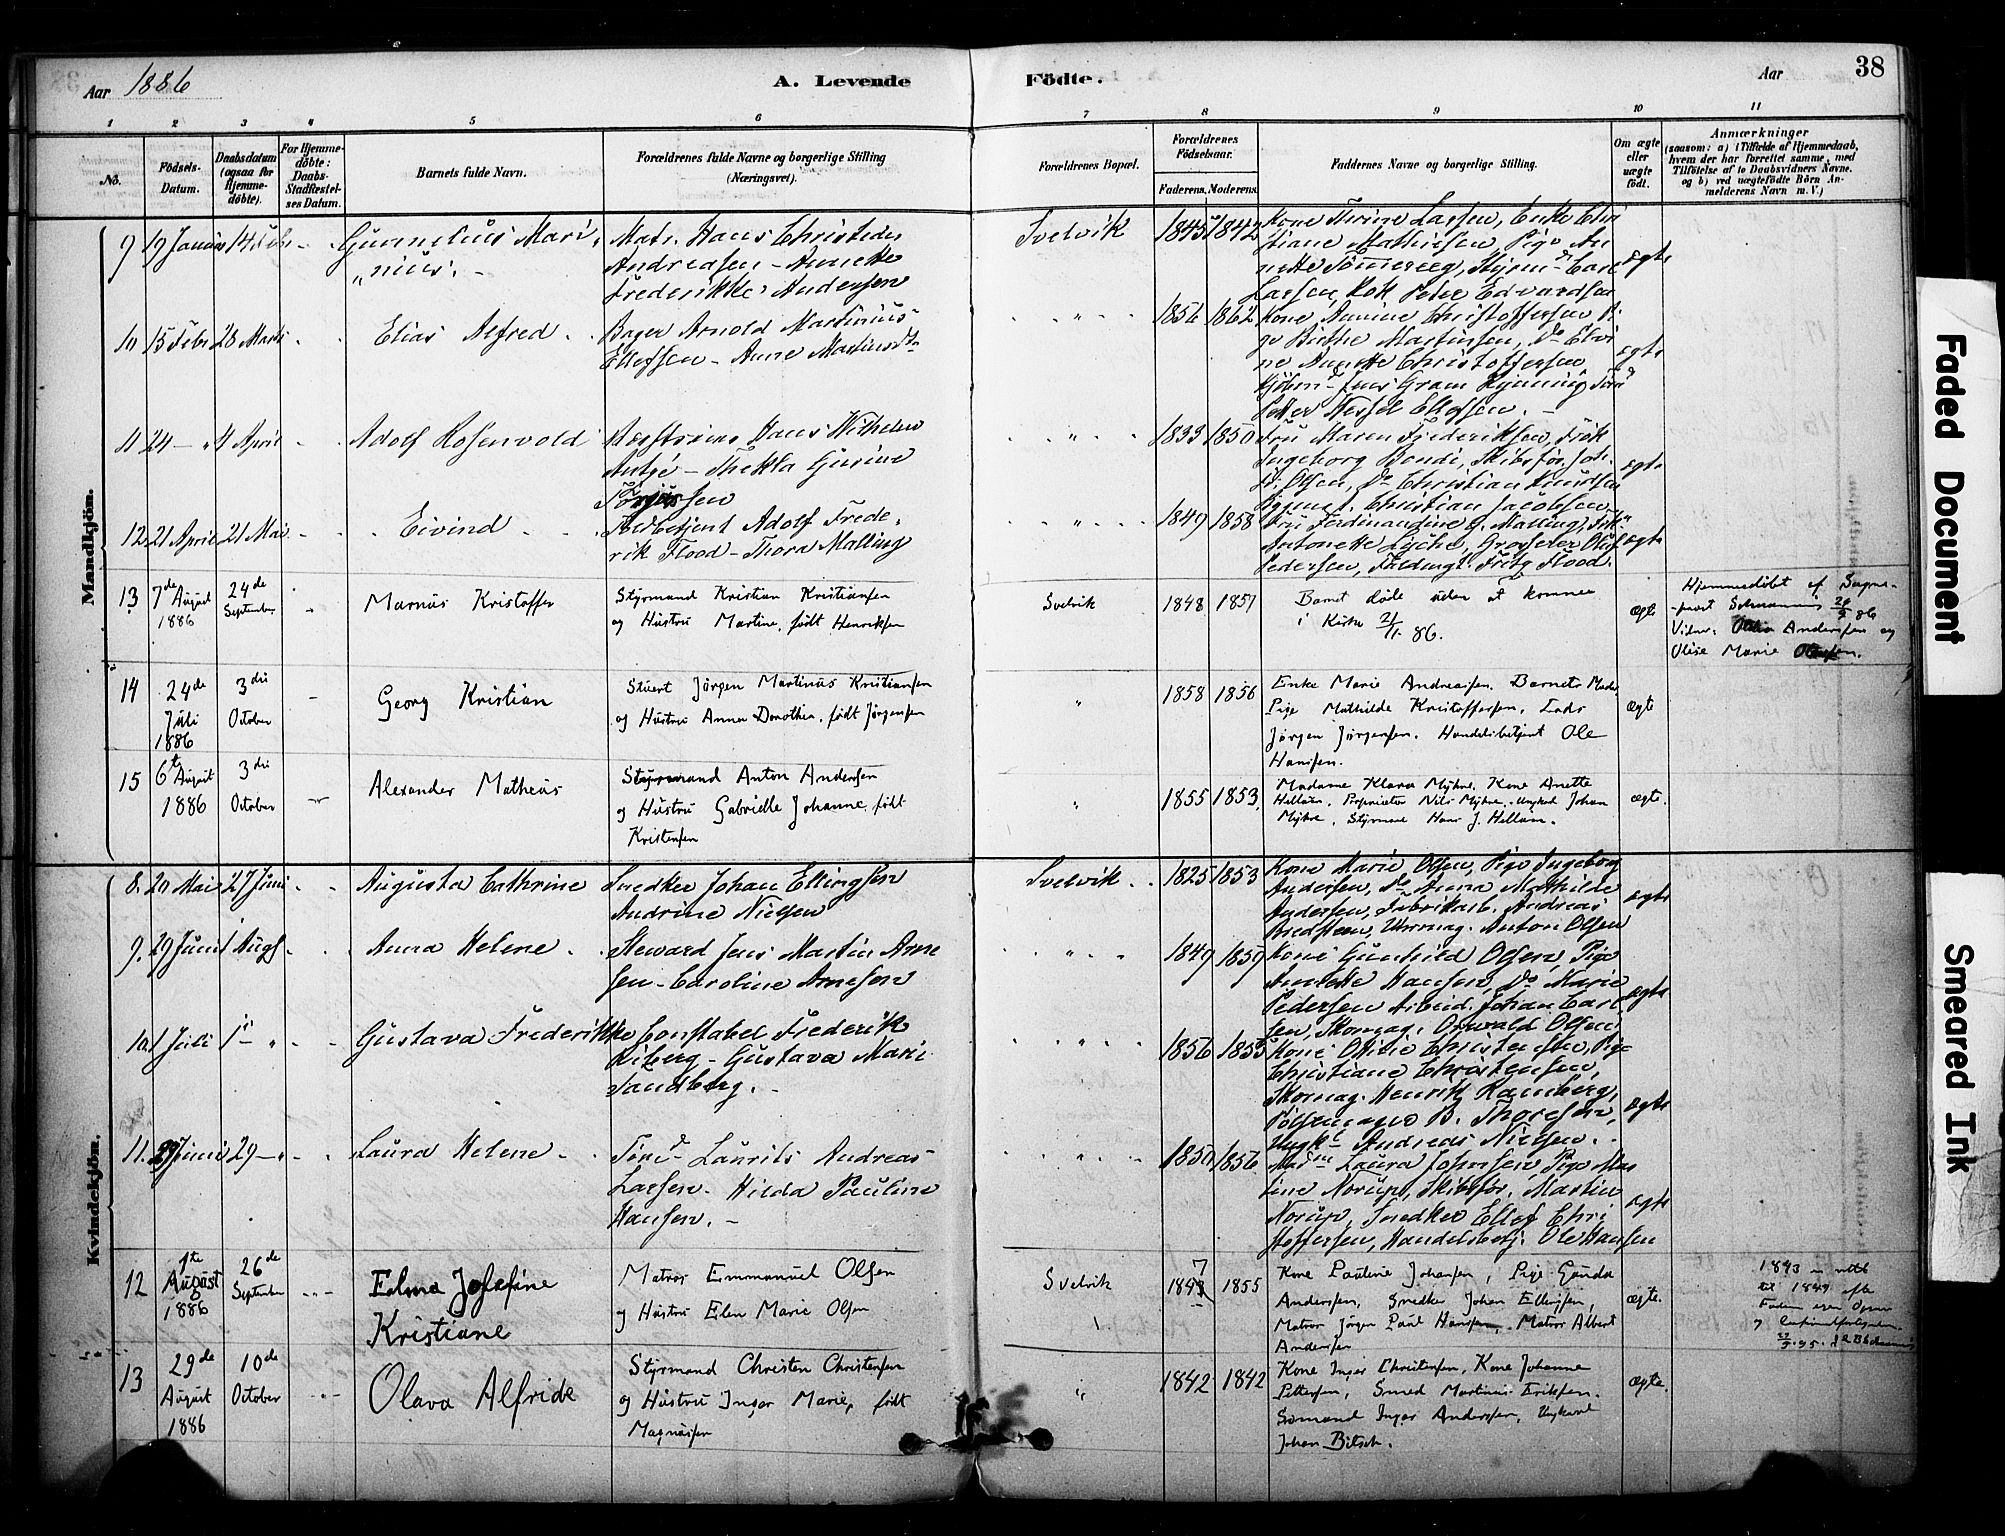 Aar 1886
A. Levende
Födte.
Aar
38
1 2 3 4 5 6 7 8 9 10 11
No.
Födsels-Datum.
Daabsdatum (ogsaa for Hjemme-døbte).
For Hjemme-døbte: Daabs-Stadfæstel-ses Datum.
Barnets fulde Navn.
Forældrenes fulde Navne og borgerlige Stilling (Næringsvei).
Forældrenes Bopæl.
Forældrenes Födselsaar.
Faderens. Moderens.
Faddernes Navne og borgerlige Stilling.
Om ægte eller uægte födt.
Anmærkninger
(saasom: a) i Tilfælde af Hjemmedaab,
hvem der har forrettet samme, med
Tilföielse af to Daabsvidners Navne,
og b) ved uægtefödte Börn An-
melderens Navn m. V.)
Mandkjön.
9 19 Januar 14 Febr
Gunnelius Mari
nius.
Matr. Hans Christeder
Andreasen - Annette
Frederikke Andersen
Svelvik
1845 1842
Kone Thrine Larsen, Enke Chri
stiane Mathiesen, Pige An
nette
Larsen, Kok Peter Edvardsen
ægte
10 15 Febr 28 Marts
Elias Alfred
Bager Arnold Martinius
Ellefsen - Anne Martinsdtr
1856 1862
Kone Annine Christoffersen Pi
ge Birthe Martinsen, Do Elvi
ne Annette Christoffersen
Kjöbm. Jens Gram
Petter Nessel Ellefsen.
ægte
11 24 - " 4 April
Adolf Rosenvold
Hans Wilhelm
- Thekla Gurine
1833 1850
Fru Maren Frederiksen, Frök
Ingeborg Bondi, Skibsför. Joh.
Olsen, Do Christian Knudsen
Christian Jacobsen
ægte
12 21 April 21 Mai
Eivind
Toldbetjent Adolf Frede
rik Flood - Thora Malling
1849 1858
Fru Ferdinandine G. Malling, Frk
Antonette Lyche, Grosserer Oluf
Pedersen, Fuldmægt. Fritz Flood.
ægte
13 7de August 1886
24de September
Marnus Kristoffer
Styrmand Kristian Kristiansen
og Hustru Martine, født Henriksen
Svelvik
1848 1857
Barnet døde uden at komme
i Kirke 21/11 86.
ægte
Hjemmedøbt af Sogne-
præst
Andersen og
Olise Marie
14 24de Juli 1886
3die October
Georg Kristian
Stuert Jörgen Martinus Kristiansen
og Hustru Anna Dorothea, født Jörgensen
1858 1856
Enke Marie Andreasen. Barnets Moder
Pige Mathilde Kristoffersen, Lods
Jörgen Jörgensen. Handelsbetjent Ole
Hansen.
ægte
15 6te August 1886
3die October
Alexander Matheus
Styrmand Anton Andersen
og Hustru Gabrielle Johanne, født
Kristensen
1855 1853
Madame Klara Myhre, Kone Anette
Hellum, Proprietær Nils Myhre, Ungkarl Johan
Myhre, Styrmand Hans J. Hellum.
ægte.
Kvindekjön.
8. 20 Mai 27 Juni
Augusta Cathrine
Snedker Johan Ellingsen
Andrine Nielsen
Svelvik
1825 1853
Kone Marie Olsen, Pige Ingeborg
Andersen, Do Anna Mathilde
Andersen, Fabrikarb. Andreas
Bredsteen, Uhrmag. Anton Olsen
ægte
9. 29 Juni 1 Augs
Anna Helene
Steward Jens Martin Arne
sen - Caroline Arnesen
1849 1859
Kone Gunhild Olsen, Pige
Annette Hansen, Do Marie
Pedersen Arbeid. Johan Carl
sen, Skomag. Oswald Olsen
ægte
10 1 Juli 1 - "
Gustava Frederikke
Constabel Frederik
Kiberg - Gustava Marie
Sandberg.
1856 1855
Kone Otilie Christensen, Pige
Christiane Christensen,
Skomag. Henrik Ramberg,
Pölsemager B. Thoresen,
Ungk. Andreas Nielsen.
ægte
11. 29 Juni 29 - "
Laura Helene
Tömd. Laurits Andreas
Larsen. Hilda Pauline
Hansen.
1850 1856
Madm Laura Johnsen, Pige Mar
tine Norup, Skibsför. Martin
Norup, Snedker Ellef Chri
stoffersen, Handelsbetj. Ole Hansen
ægte
12 1te August 1886
26de September
Elma Josefine
Kristiane
Matros Emmanuel Olsen
og Hustru Elen Marie Olsen
Svelvik
1843 7 1855
Kone Pauline Johansen, Pige Gunda
Andersen, Snedker Johan Ellingsen,
Matros Jörgen Paul Hansen, Matros Albert
Andersen
ægte.
1843 er rettet
til 1847 efter
Faderens egen
13 29de August 1886
10de October
Olava Alfride
Styrmand Christen Christensen
og Hustru Inger Marie, født
Magnusen
1842 1842
Kone Inger Christensen, Kone Johanne
Pettersen, Smed Martinus Eriksen.
Sømand Inger Andersen, Ungkarl
Johan Bilsch.
ægte.
Faded Document
Smeared Ink